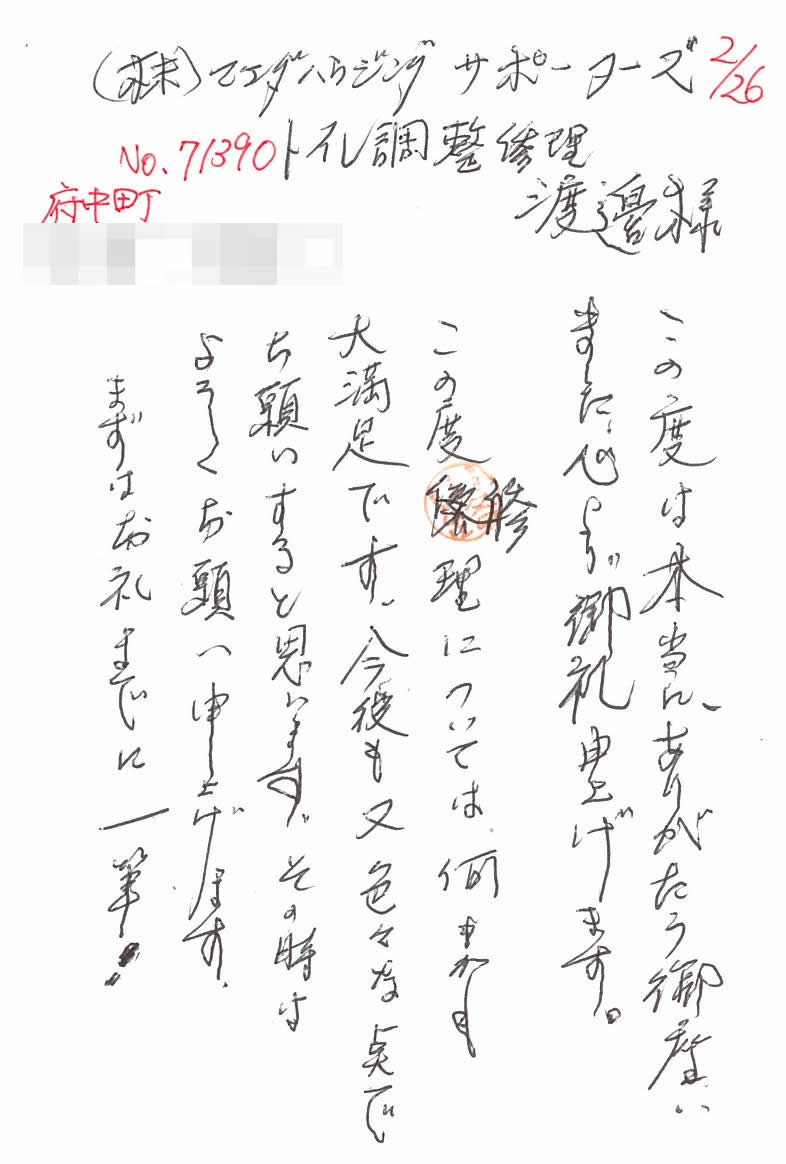 (株)マエダハウジング サポーターズ
2/26
No.71390
トイレ調整修理
府中町
渡邉様
この度は本当に、ありがたう御座い
ました、心より御礼申上げます。
この度修理については、何もかも
大満足です、今後も又色々な点で
お願いすると思います、その時は
よろしくお願い申し上げます、
まずはお礼までに一筆!